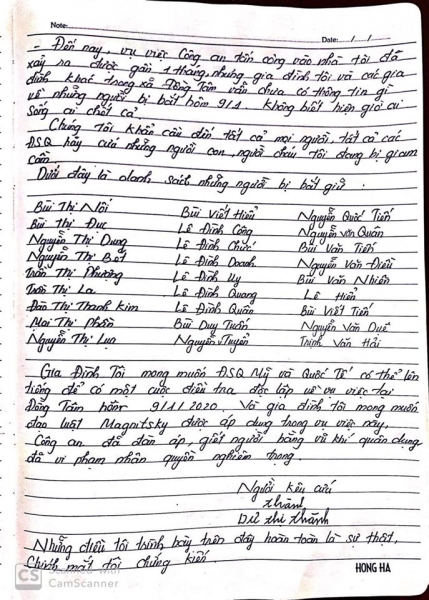 Note:
Date: / /
- Đến nay, vụ việc Công an tấn công vào nhà tôi đã
xảy ra được gần 1 tháng, nhưng gia đình tôi và các gia
đình khác trong xã Đồng Tâm vẫn chưa có thông tin gì
về những người bị bắt hôm 9/1 không biết hiện giờ ai
sống ai chết cả
Chúng tôi khẩn cầu đến tất cả mọi người, tất cả các
ĐSQ hãy cứu những người con, người cháu tôi đang bị giam
cầm
Dưới đây là danh sách những người bị bắt giữ :
Bùi Thị Nối Bùi Viết Hiểu Nguyễn Quốc Tiến
Bùi Thị Đục Lê Đình Công Nguyễn Văn Quân
Nguyễn Thị Dung Lê Đình Chức Bùi Văn Tiến
Nguyễn Thị Bét Lê Đình Doanh Nguyễn Văn Điều
Trần Thị Phượng Lê Đình Uy Bùi Văn Nhiên
Trần Thị La Lê Đình Quang Lê Hiển
Đào Thị Thanh Kim Lê Đình Quân Bùi Viết Tiến
Mai Thị Phần Bùi Duy Tuấn Nguyễn Văn Duệ
Nguyễn Thị Lụa Nguyễn V Tuyển Trịnh Văn Hải
Gia Đình Tôi mong muốn ĐSQ Mỹ và Quốc Tế có thể lên
tiếng để có một cuộc điều tra độc lập về vụ việc tại
Đồng Tâm hôm 9/1/2020. Và gia đình tôi mong muốn
đạo luật Magnitsky được áp dụng trong vụ việc này.
Công an đã đàn áp, giết người bằng vũ khí quân dụng
đã vi phạm nhân quyền nghiêm trọng.
Người kêu cứu
Thành
Dư Thị Thành
Những điều tôi trình bày trên đây hoàn toàn là sự thật,
Chính mắt tôi chứng kiến.
CS CamScanner
HONG HA